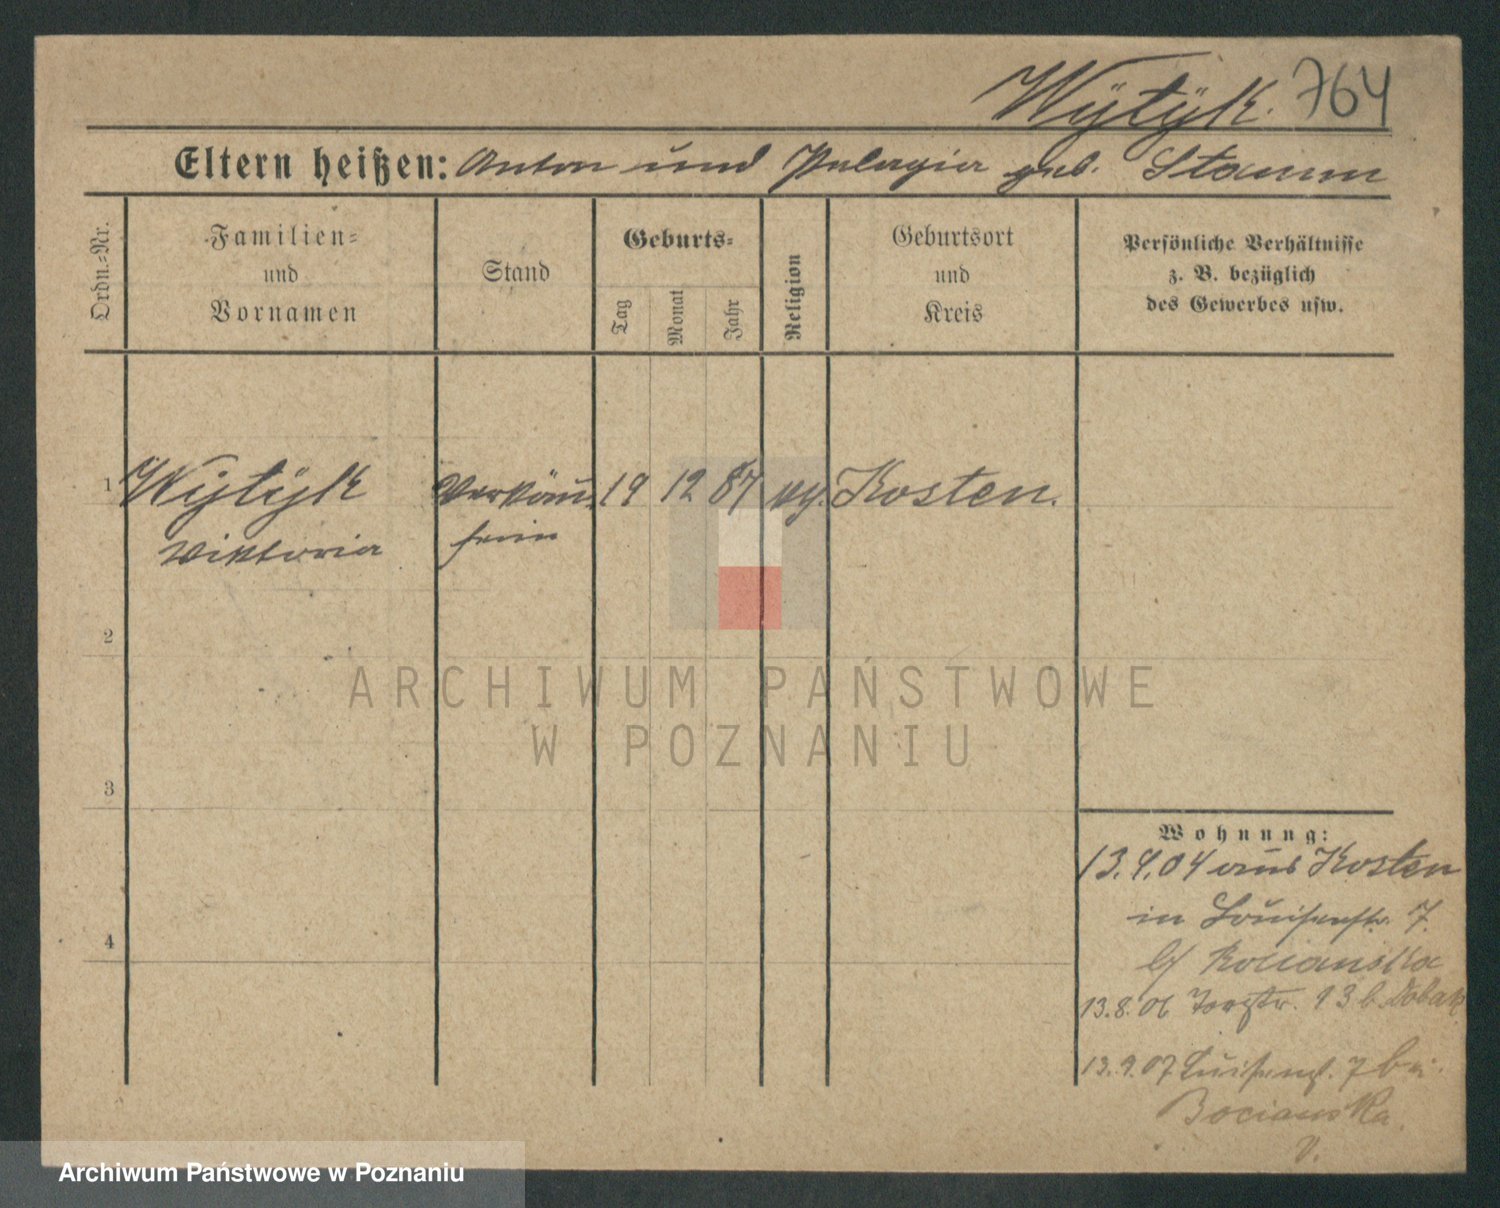 Wÿtÿk. 764
Eltern heißen: Anton und Pelagia geb. Stamm
Ordn.=Nr.
Familien=
und
Vornamen
Stand
Geburts=
Tag
Monat
Jahr
Religion
Geburtsort
und
Kreis
Persönliche Verhältnisse
z. B. bezüglich
des Gewerbes usw.
1 Wÿtÿk Verkäu- 19 12 87 Kosten.
Wiktoria ferin
2
3
4
Wohnung:
13.4.04 aus Kosten
in Louisenstr. 7.
b/ Bocianska
13.8.06 13 b.
13.9.07 Luisenst. 7 bei
Bocianska.
ARCHIWUM PAŃSTWOWE
W POZNANIU
Archiwum Państwowe w Poznaniu